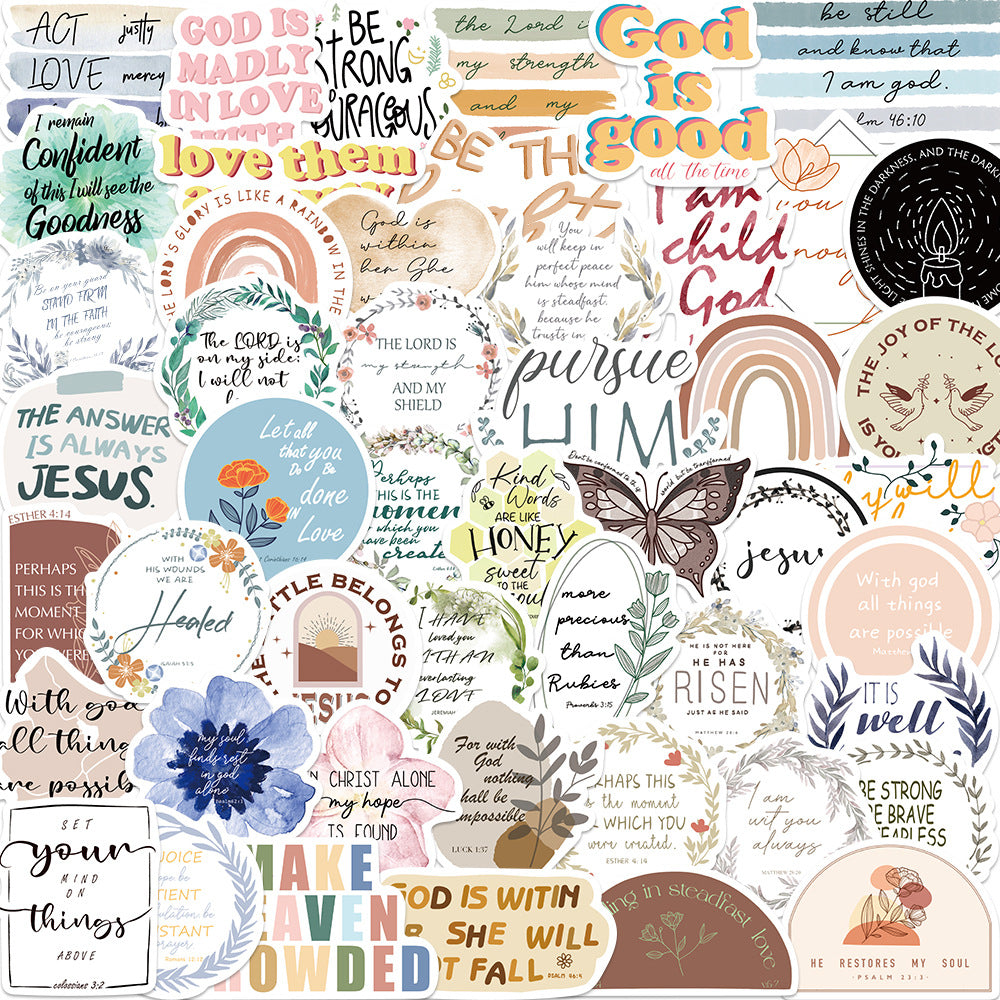 ACT justly
LOVE mercy
GOD IS
MADLY
IN LOVE
WITH
BE
STRONG
COURAGEOUS
the Lord is
my strength
and my
God
is
good
all the time
be still
and know that
I am god.
46:10
I remain
Confident
of this I will see the
Goodness
love them
BE TH
I am
child
God
you
THE LORD'S GLORY IS LIKE A RAINBOW IN THE
God is
within
her She
You
will keep in
perfect peace
him whose mind
is steadfast,
because he
trusts in
LIGHT SHINES IN THE DARKNESS, AND THE DARK
Be on your guard
STAND FIRM
IN THE FAITH
be courageous
be strong
The LORD is
on my side:
I will not
THE LORD IS
my strength
AND MY
SHIELD
pursue
HIM
THE JOY OF THE L
IS YO
THE ANSWER
IS ALWAYS
JESUS.
Let all
that you
Do Be
done
IN
Love
1 Corinthians 16:14
Perhaps
THIS IS THE
moment
for which you
have been
create
Kind
Words
ARE LIKE
HONEY
sweet
TO THE
soul
Don't be conformed to this
world but be transformed
jesus
y will
ESTHER 4:14
PERHAPS
THIS IS TH
MOMENT
FOR WHIC
YOU WERE
WITH
HIS WOUNDS
WE ARE
Healed
ISAIAH 53:5
TTLE BELONGS TO
JESUS
I HAVE
loved you
WITH AN
everlasting
LOVE
JEREMIAH
more
precious
than
Rubies
Proverbs 3:15
HE IS NOT HERE
FOR
HE HAS
RISEN
JUST AS HE SAID
MATTHEW 28:6
With god
all things
are possible
Matthew
With god
all thing
are possib
my soul
finds rest
in god
alone
Psalm62:1
CHRIST ALONE
my hope
IS FOUND
For with
God
nothing
shall be
impossible
LUCK 1:37
ERHAPS THIS
is the moment
R WHICH YOU
were created.
ESTHER 4:14
I am
wit you
always
MATTHEW 28:20
IT IS
well
BE STRONG
BE BRAVE
FEARLESS
SET
your
MIND
ON
things
ABOVE
colossians 3:2
JOICE
hope be
TIENT
ulation, be
NSTANT
prayer
Romans 12:12
MAKE
HEAVEN
ROWDED
GOD IS WITIN
R SHE WILL
OT FALL
PSALM 46:4
ing in steadfast love
HE RESTORES MY SOUL
·PSALM 23:3·